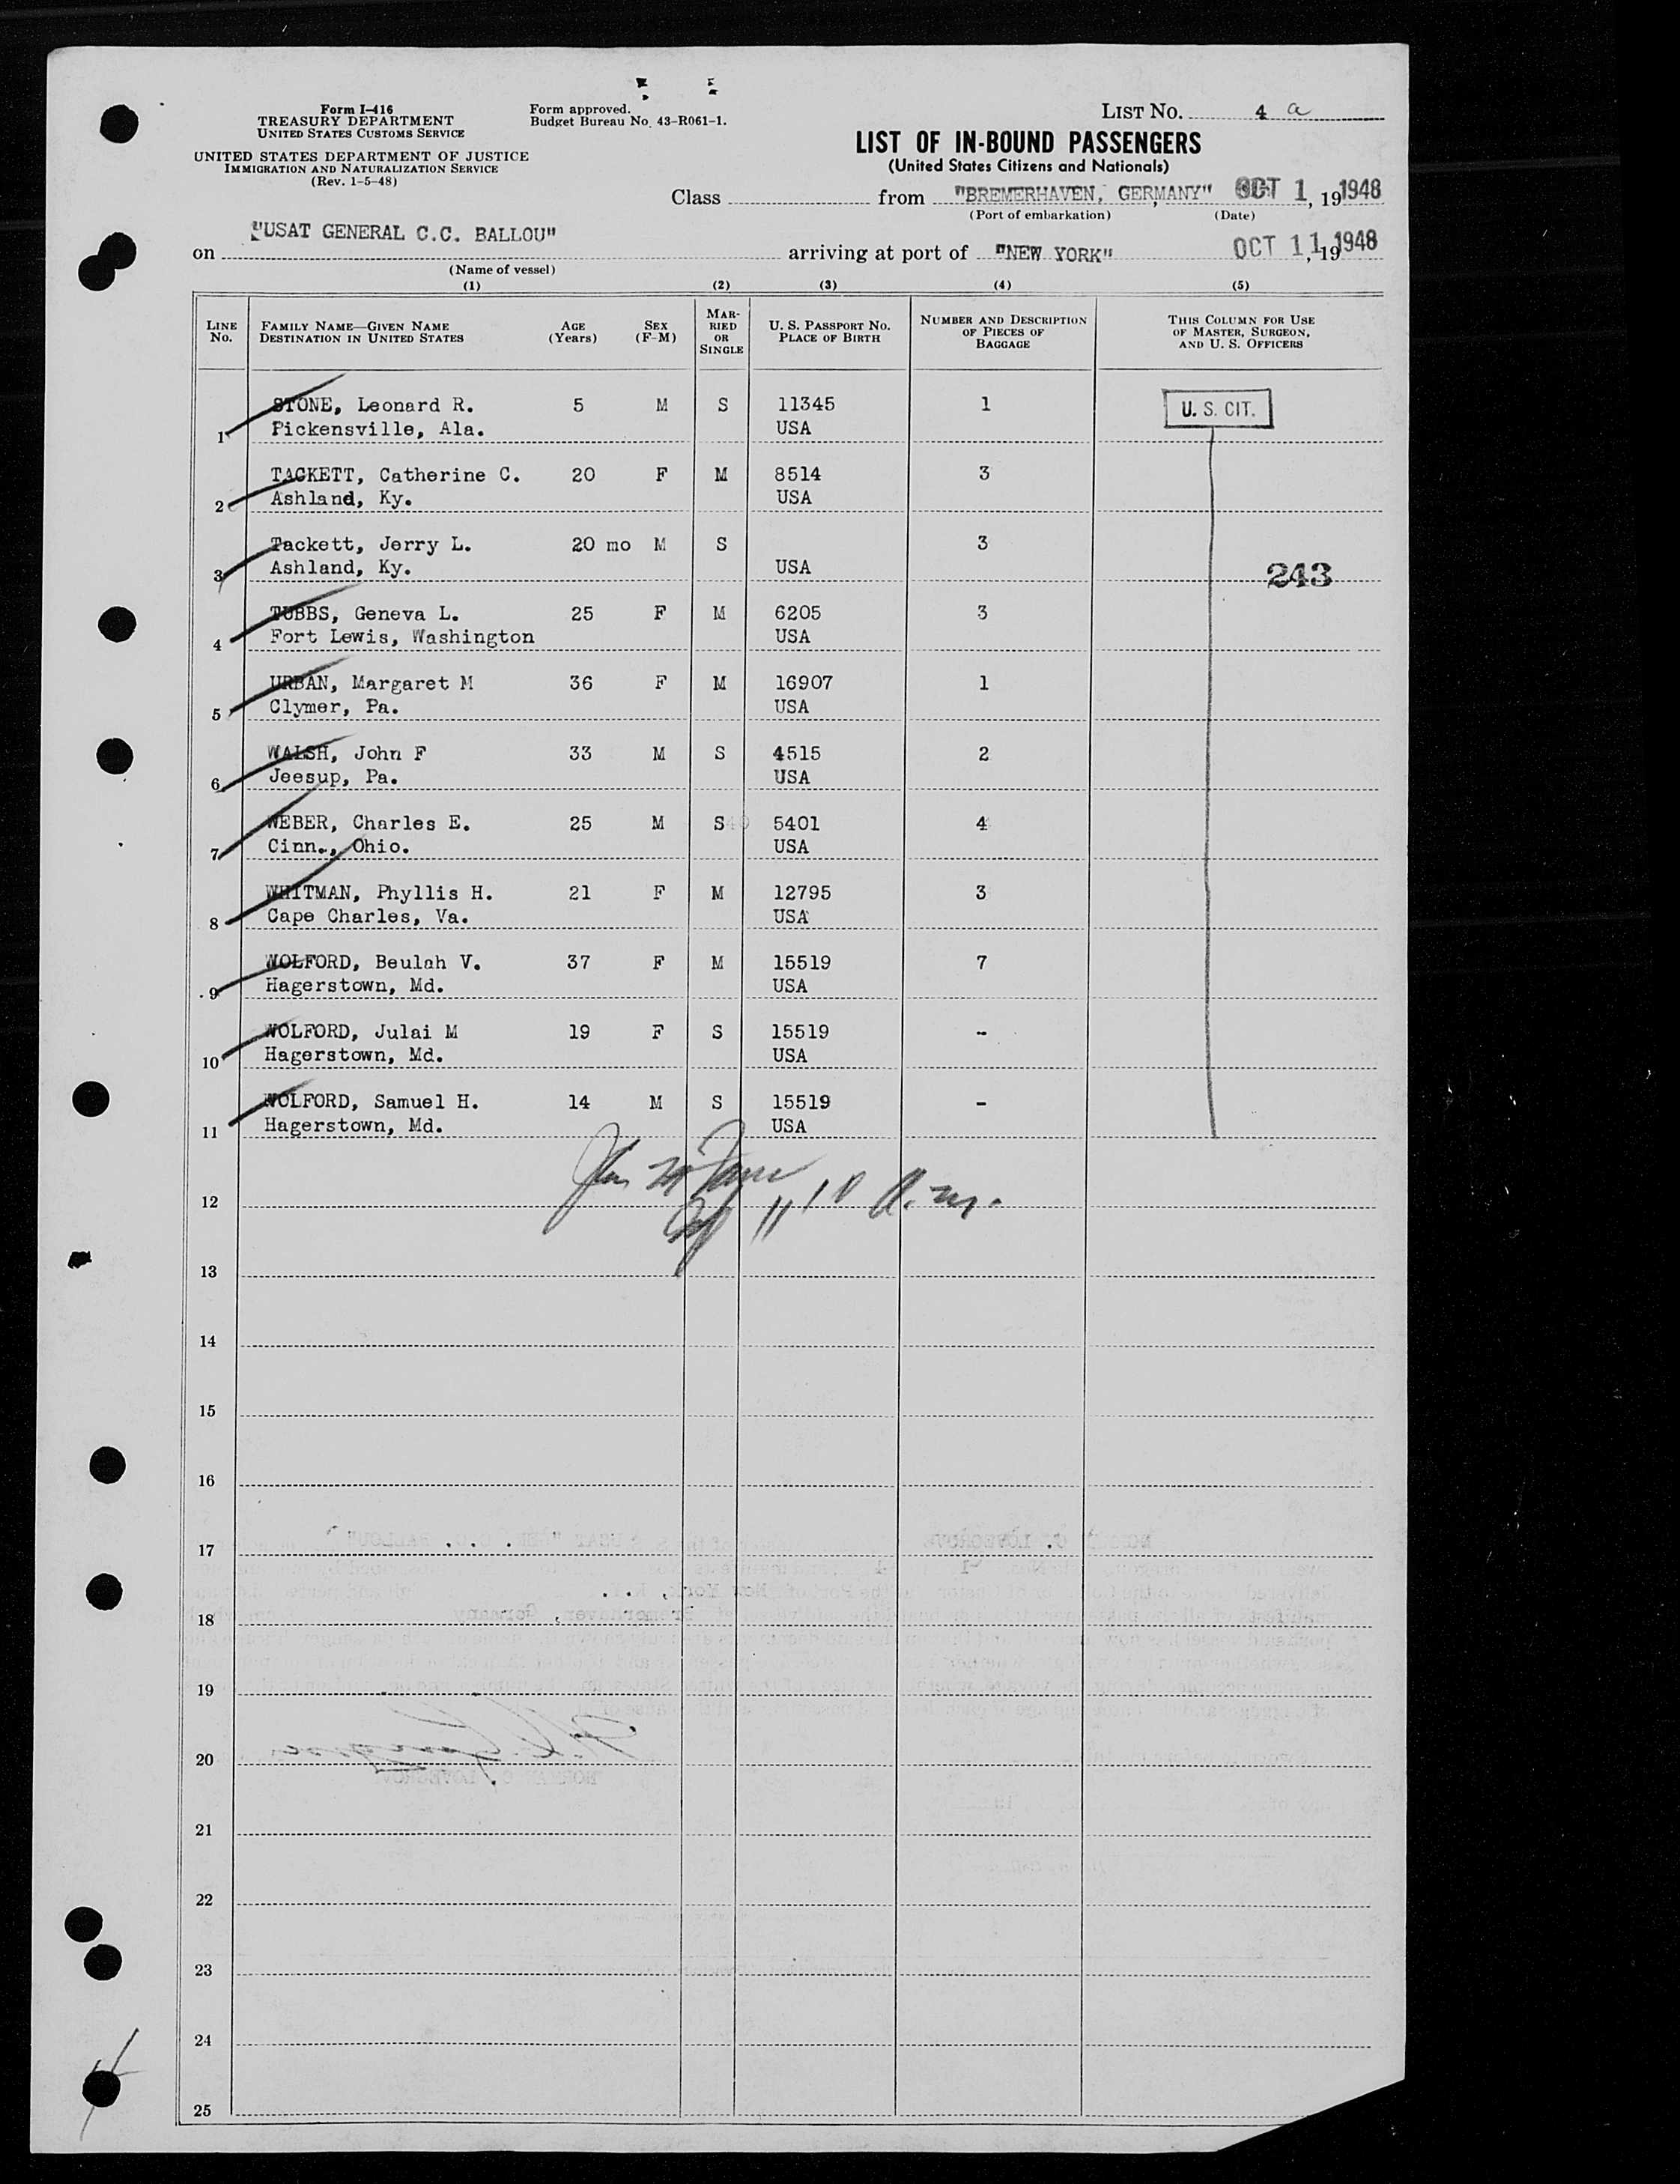 Form I-416
TREASURY DEPARTMENT
UNITED STATES CUSTOMS SERVICE
UNITED STATES DEPARTMENT OF JUSTICE
IMMIGRATION AND NATURALIZATION SERVICE
(Rev. 1-5-48)
Form approved.
Budget Bureau No. 43-R061-1.
LIST NO. 4 a
LIST OF IN-BOUND PASSENGERS
(United States Citizens and Nationals)
Class from "BREMERHAVEN, GERMANY" OCT 1, 191948
(Port of embarkation) (Date)
on "USAT GENERAL C.C. BALLOU" arriving at port of "NEW YORK" OCT 11, 191948
(Name of vessel)
(1) (2) (3) (4) (5)
LINE NO. FAMILY NAME—GIVEN NAME DESTINATION IN UNITED STATES AGE (Years) SEX (F-M) MARRIED OR SINGLE U. S. PASSPORT NO. PLACE OF BIRTH NUMBER AND DESCRIPTION OF PIECES OF BAGGAGE THIS COLUMN FOR USE OF MASTER, SURGEON, AND U. S. OFFICERS
STONE, Leonard R. 5 M S 11345 1 U. S. CIT.
1 Pickensville, Ala. USA
TACKETT, Catherine C. 20 F M 8514 3
2 Ashland, Ky. USA
Tackett, Jerry L. 20 mo M S 3
3 Ashland, Ky. USA 243
TUBBS, Geneva L. 25 F M 6205 3
4 Fort Lewis, Washington USA
URBAN, Margaret M 36 F M 16907 1
5 Clymer, Pa. USA
WALSH, John F 33 M S 4515 2
6 Jeesup, Pa. USA
WEBER, Charles E. 25 M S 5401 4
7 Cinn., Ohio. USA
WHITMAN, Phyllis H. 21 F M 12795 3
8 Cape Charles, Va. USA
WOLFORD, Beulah V. 37 F M 15519 7
9 Hagerstown, Md. USA
WOLFORD, Julai M 19 F S 15519 -
10 Hagerstown, Md. USA
WOLFORD, Samuel H. 14 M S 15519 -
11 Hagerstown, Md. USA
12
13
14
15
16
17
18
19
20
21
22
23
24
25